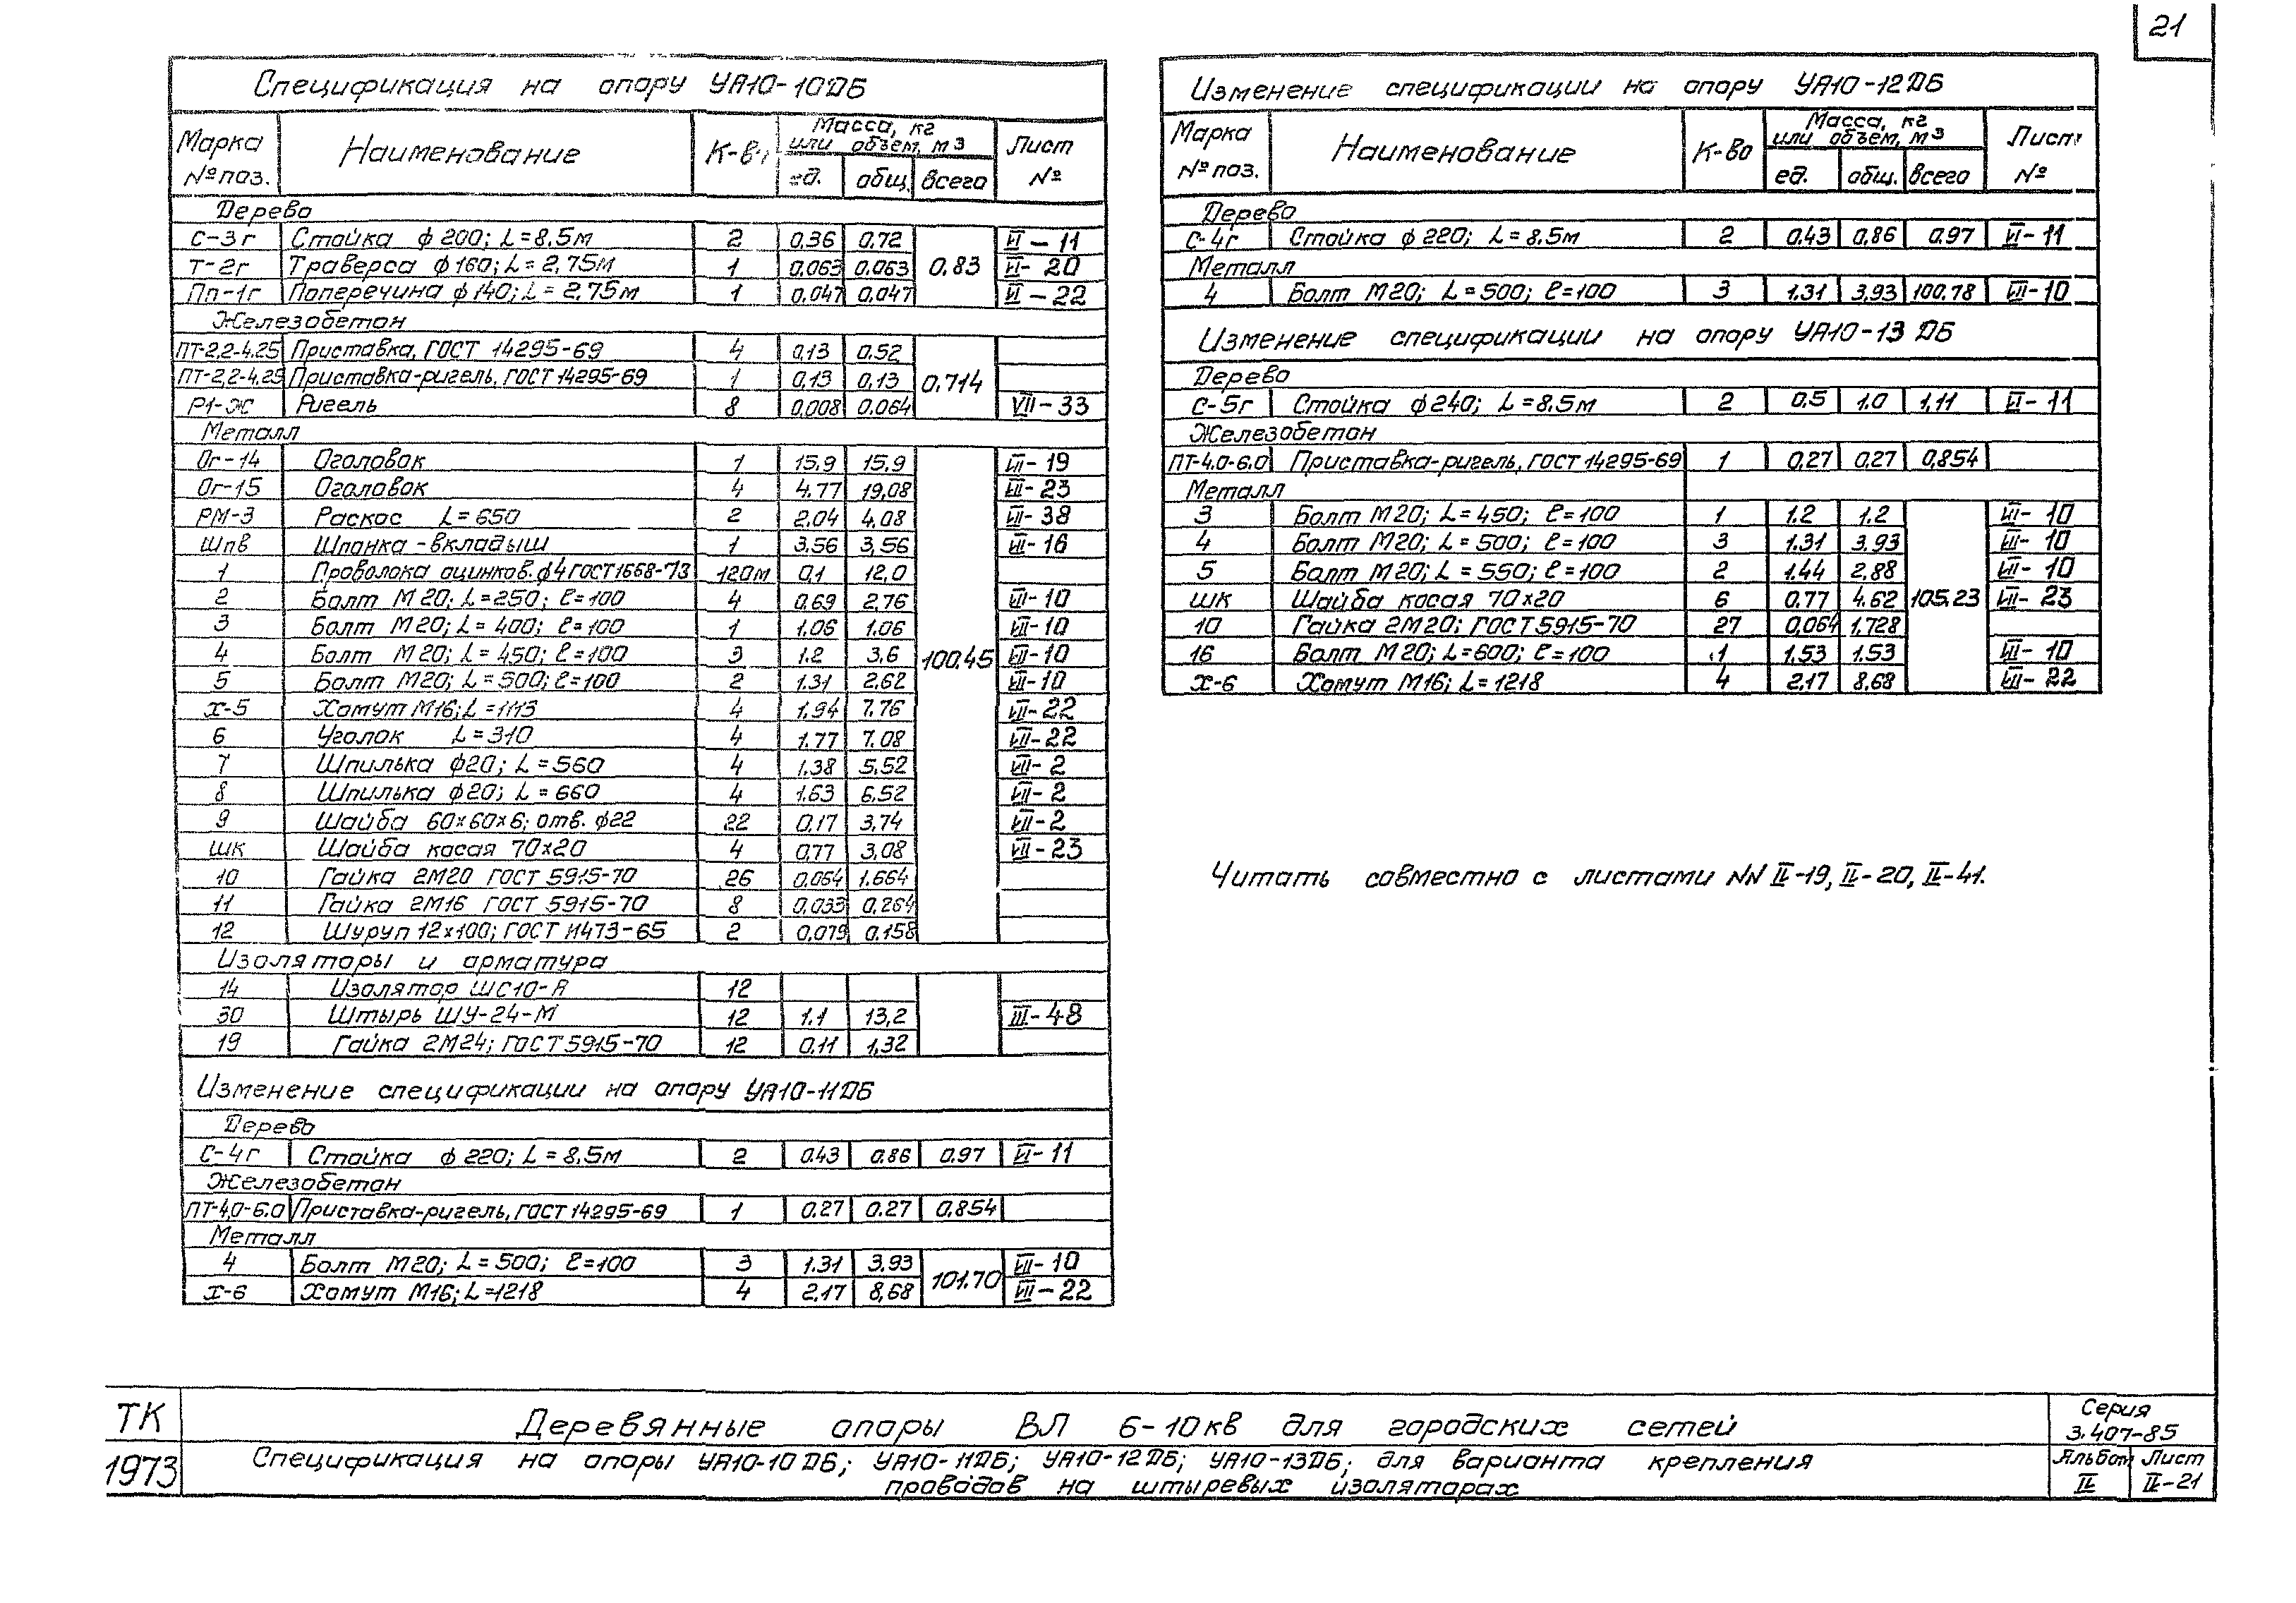 21
Спецификация на опору УА10-10ДБ
Марка № поз. Наименование К-в Масса, кг или объем, м3 ед. общ. всего Лист №
Дерево
С-3г Стойка ф200; L=8.5м 2 0,36 0,72 0,83 VI-11
Т-2г Траверса ф160; L=2,75м 1 0,063 0,063 VI-20
Пп-1г Поперечина ф140; L=2,75м 1 0,047 0,047 VI-22
Железобетон
ПТ-2,2-4,25 Приставка, ГОСТ 14295-69 4 0,13 0,52 0,714
ПТ-2,2-4,25 Приставка-ригель, ГОСТ 14295-69 1 0,13 0,13
Р1-Ж Ригель 8 0,008 0.064 VII-33
Металл
Ог-14 Оголовок 1 15,9 15.9 100,45 VII-19
Ог-15 Оголовок 4 4.77 19,08 VII-23
РМ-3 Раскос L=650 2 2,04 4,08 VII-38
Шпв Шпонка-вкладыш 1 3.56 3,56 VII-16
1 Проволока оцинков. ф4 ГОСТ 1668-73 120м 0,1 12,0
2 Болт М20; L=250; ℓ=100 4 0,69 2,76 VII-10
3 Болт М20; L=400; ℓ=100 1 1,06 1,06 VII-10
4 Болт М20; L=450; ℓ=100 3 1.2 3,6 VII-10
5 Болт М20; L=500; ℓ=100 2 1.31 2,62 VII-10
Х-5 Хомут М16; L=1113 4 1,94 7.76 VII-22
6 Уголок L=310 4 1.77 7.08 VII-22
7 Шпилька ф20; L=560 4 1,38 5,52 VII-2
8 Шпилька ф20; L=660 4 1.63 6,52 VII-2
9 Шайба 60х60х6; отв. ф22 22 0,17 3,74 VII-2
ШК Шайба косая 70х20 4 0,77 3,08 VII-23
10 Гайка 2М20 ГОСТ 5915-70 26 0,064 1.664
11 Гайка 2М16 ГОСТ 5915-70 8 0,033 0,264
12 Шуруп 12х100; ГОСТ 11473-65 2 0,079 0.158
Изоляторы и арматура
14 Изолятор ШС10-А 12
30 Штырь ШУ-24-М 12 1.1 13,2 III-48
19 Гайка 2М24; ГОСТ 5915-70 12 0,11 1,32
Изменение спецификации на опору УА10-11ДБ
Дерево
С-4г Стойка ф220; L=8,5м 2 0.43 0.86 0.97 VI-11
Железобетон
ПТ-4,0-6.0 Приставка-ригель, ГОСТ 14295-69 1 0.27 0.27 0,854
Металл
4 Болт М20; L=500; ℓ=100 3 1.31 3,93 101.70 VII-10
Х-6 Хомут М16; L=1218 4 2,17 8,68 VII-22
Изменение спецификации на опору УА10-12ДБ
Марка № поз. Наименование К-во Масса, кг или объем, м3 ед. общ. всего Лист №
Дерево
С-4г Стойка ф220; L=8.5м 2 0.43 0,86 0.97 VI-11
Металл
4 Болт М20; L=500; ℓ=100 3 1.31 3,93 100.78 VII-10
Изменение спецификации на опору УА10-13ДБ
Дерево
С-5г Стойка ф240; L=8.5м 2 0,5 1.0 1,11 VI-11
Железобетон
ПТ-4.0-6.0 Приставка-ригель, ГОСТ 14295-69 1 0,27 0,27 0,854
Металл
3 Болт М20; L=450; ℓ=100 1 1.2 1.2 105.23 VII-10
4 Болт М20; L=500; ℓ=100 3 1.31 3,93 VII-10
5 Болт М20; L=550; ℓ=100 2 1.44 2,88 VII-10
ШК Шайба косая 70х20 6 0.77 4.62 VII-23
10 Гайка 2М20; ГОСТ 5915-70 27 0,064 1,728
16 Болт М20; L=600; ℓ=100 1 1,53 1.53 VII-10
Х-6 Хомут М16; L=1218 4 2,17 8,68 VII-22
Читать совместно с листами NN II-19, II-20, II-41.
ТК Деревянные опоры ВЛ 6-10кв для городских сетей Серия 3.407-85
1973 Спецификация на опоры УА10-10ДБ; УА10-11ДБ; УА10-12ДБ; УА10-13ДБ; для варианта крепления
проводов на штыревых изоляторах
Альбом II Лист II-21